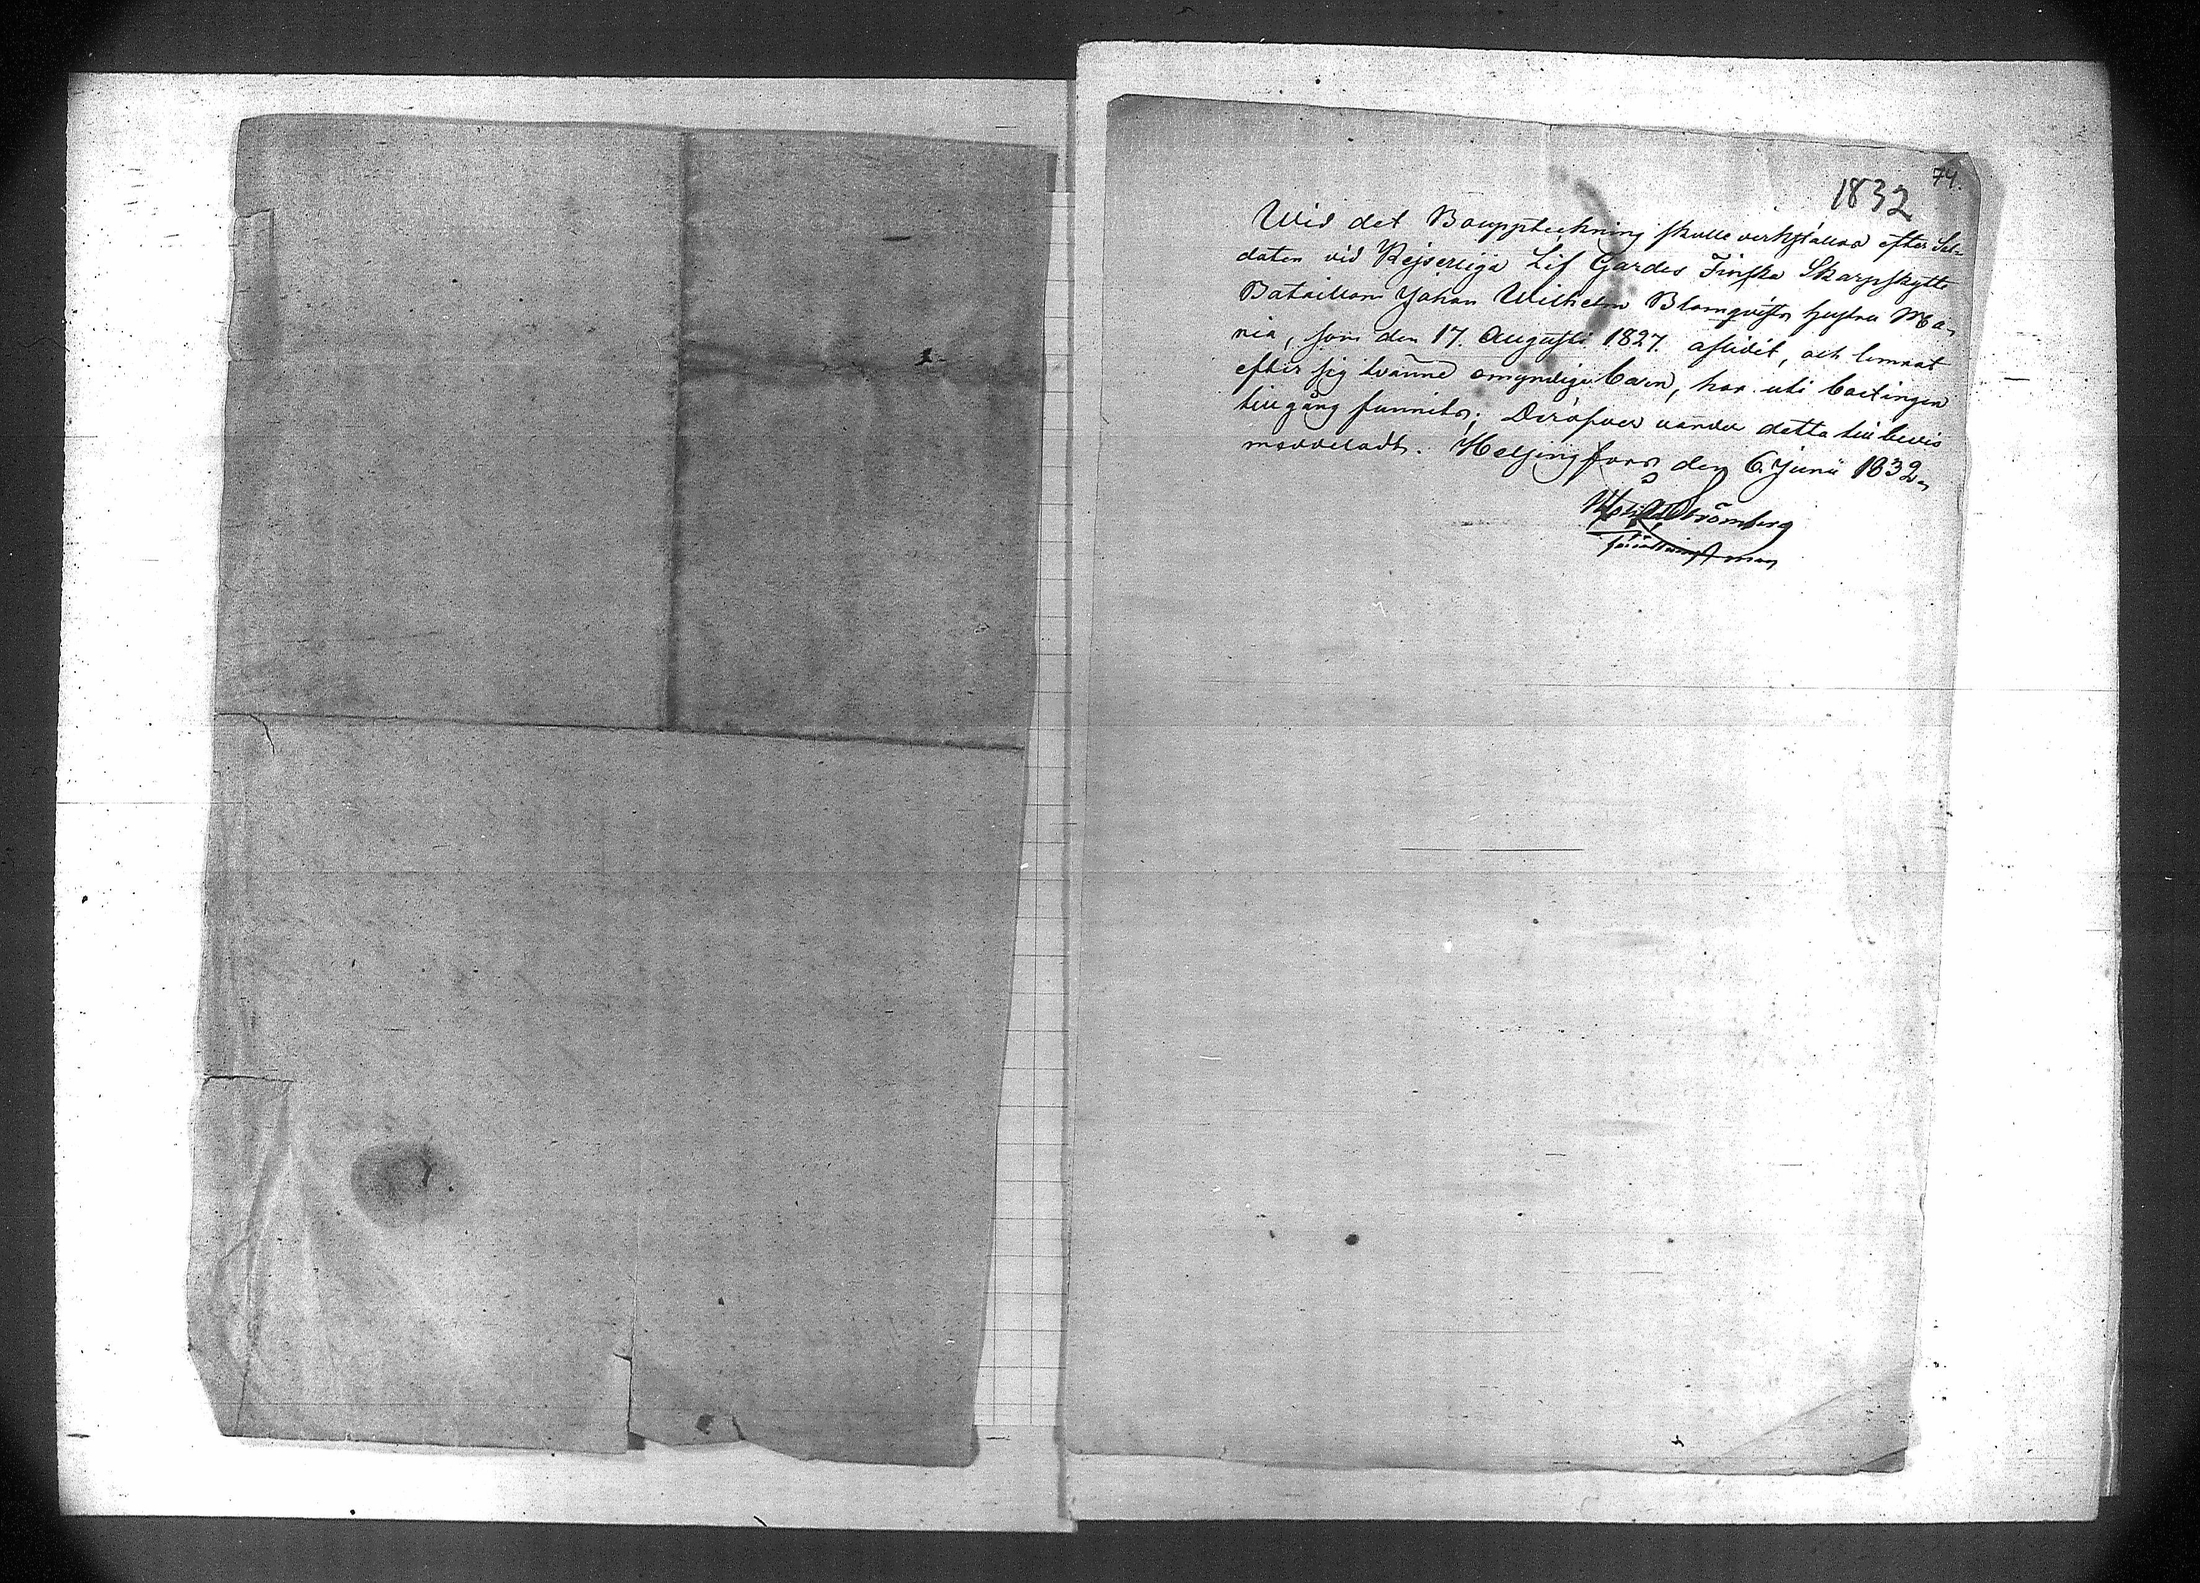 74.
1832
Wid det Bouppteckning skulle verkställas efter Sol-
daten vid Kejserliga Lif Gardes Finska Skarpskytte
Bataillon Johan Wilhelm Blomqvists hustru Ma-
ria, som den 17. Augusti 1827. aflidit, och lemnat
efter sig tvänne omyndiga barn, har uti boet ingen
tillgång funnits; Deröfver varder detta till bevis
meddeladt. Helsingfors den 6 Junii 1832.
Strömberg